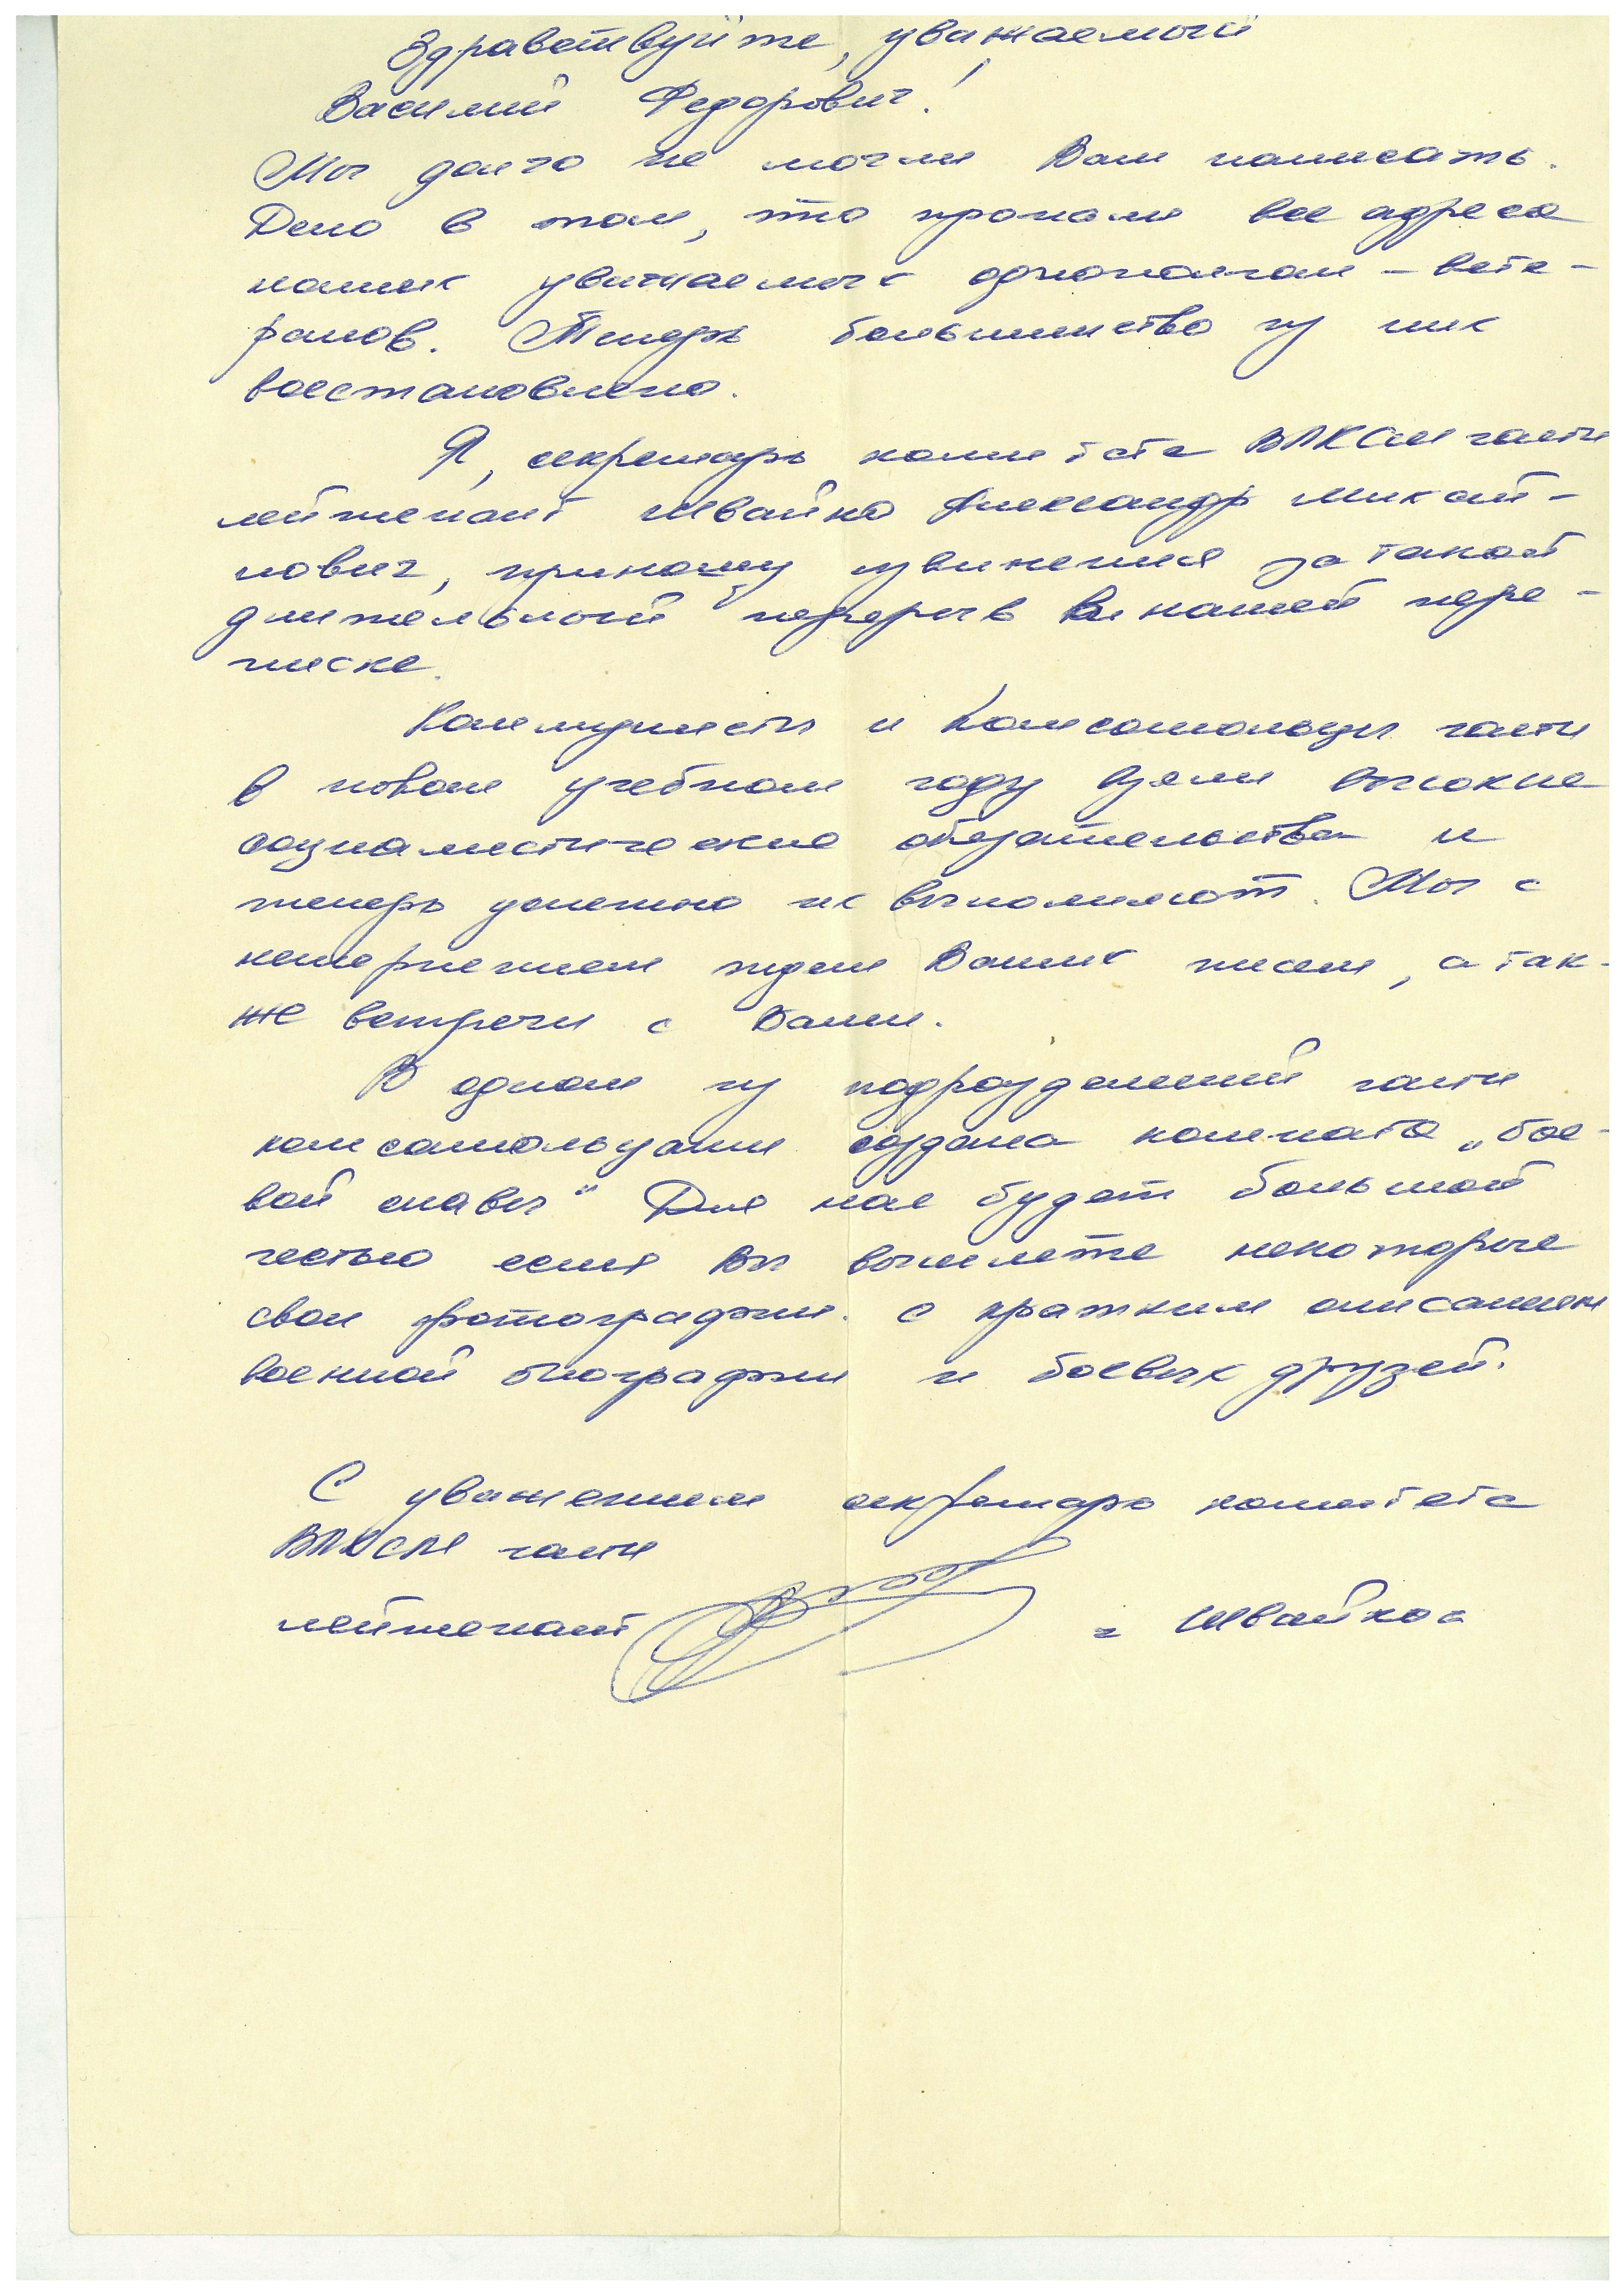 Здравствуйте, уважаемый
Василий Федорович!
Мы долго не могли Вам написать.
Дело в том, что пропали все адреса
наших уважаемых однополчан – вете-
ранов. Теперь большинство из них
восстановлено.
Я, секретарь комитета ВЛКСМ части
лейтенант Швайко Александр Михай-
лович, приношу извинения за такой
длительный перерыв в нашей пере-
писке.
Коммунисты и комсомольцы части
в новом учебном году взяли высокие
социалистические обязательства и
теперь успешно их выполняют. Мы с
нетерпением ждем Ваших писем, а так-
же встречи с Вами.
В одном из подразделений части
комсомольцами создана комната „бое-
вой славы“ Для нас будет большой
честью если Вы вышлете некоторые
свои фотографии. с кратким описанием
военной биографии и боевых друзей.
С уважением секретарь комитета
ВЛКСМ части
лейтенант = Швайко =